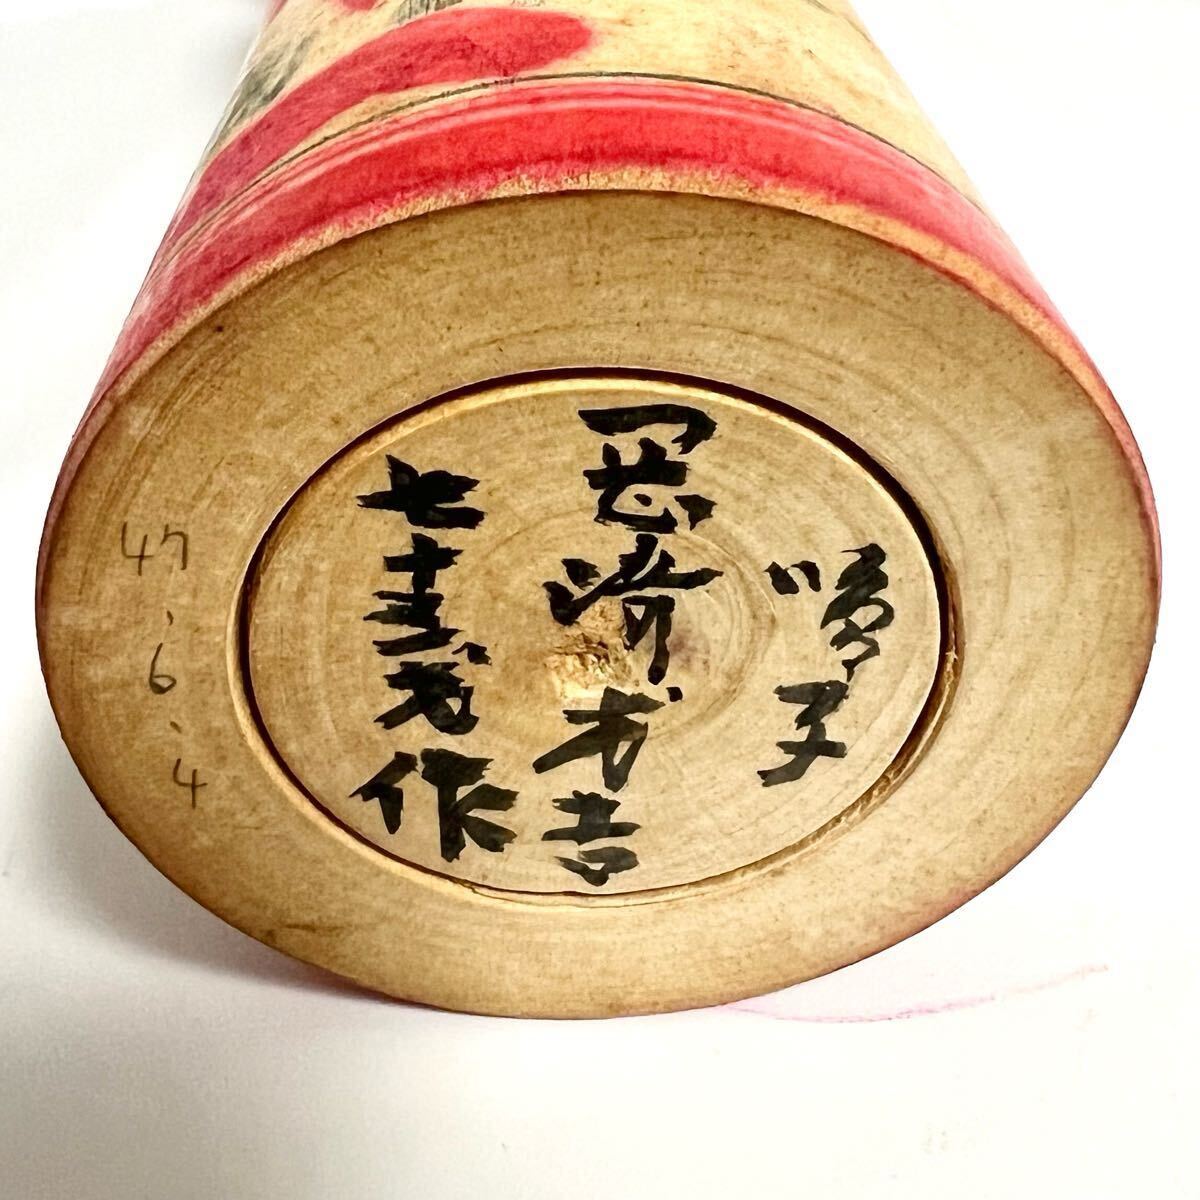 鳴子
岡崎才吉
七十三才作
47.6.4